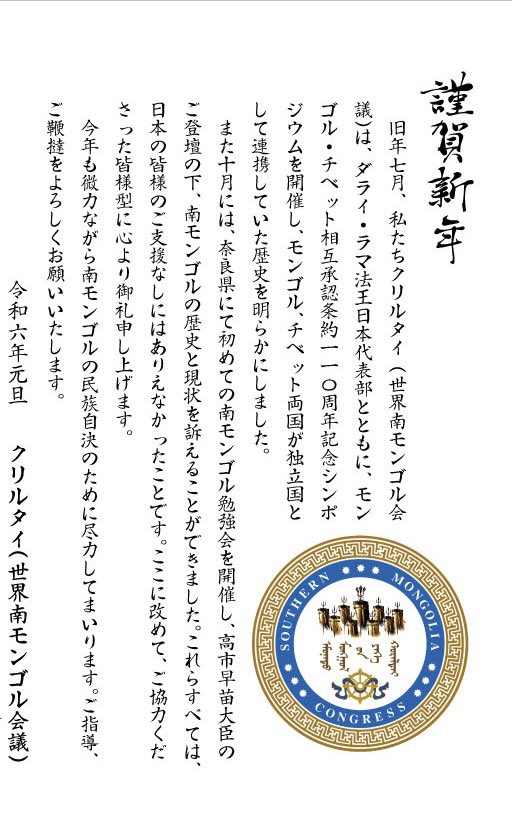 謹賀新年
旧年七月、私たちクリルタイ（世界南モンゴル会
議）は、ダライ・ラマ法王日本代表部とともに、モン
ゴル・チベット相互承認条約一一〇周年記念シンポ
ジウムを開催し、モンゴル、チベット両国が独立国と
して連携していた歴史を明らかにしました。
また十月には、奈良県にて初めての南モンゴル勉強会を開催し、高市早苗大臣の
ご登壇の下、南モンゴルの歴史と現状を訴えることができました。これらすべては、
日本の皆様のご支援なしにはありえなかったことです。ここに改めて、ご協力くだ
さった皆様型に心より御礼申し上げます。
今年も微力ながら南モンゴルの民族自決のために尽力してまいります。ご指導、
ご鞭撻をよろしくお願いいたします。
令和六年元旦　クリルタイ（世界南モンゴル会議）
SOUTHERN MONGOLIA
CONGRESS